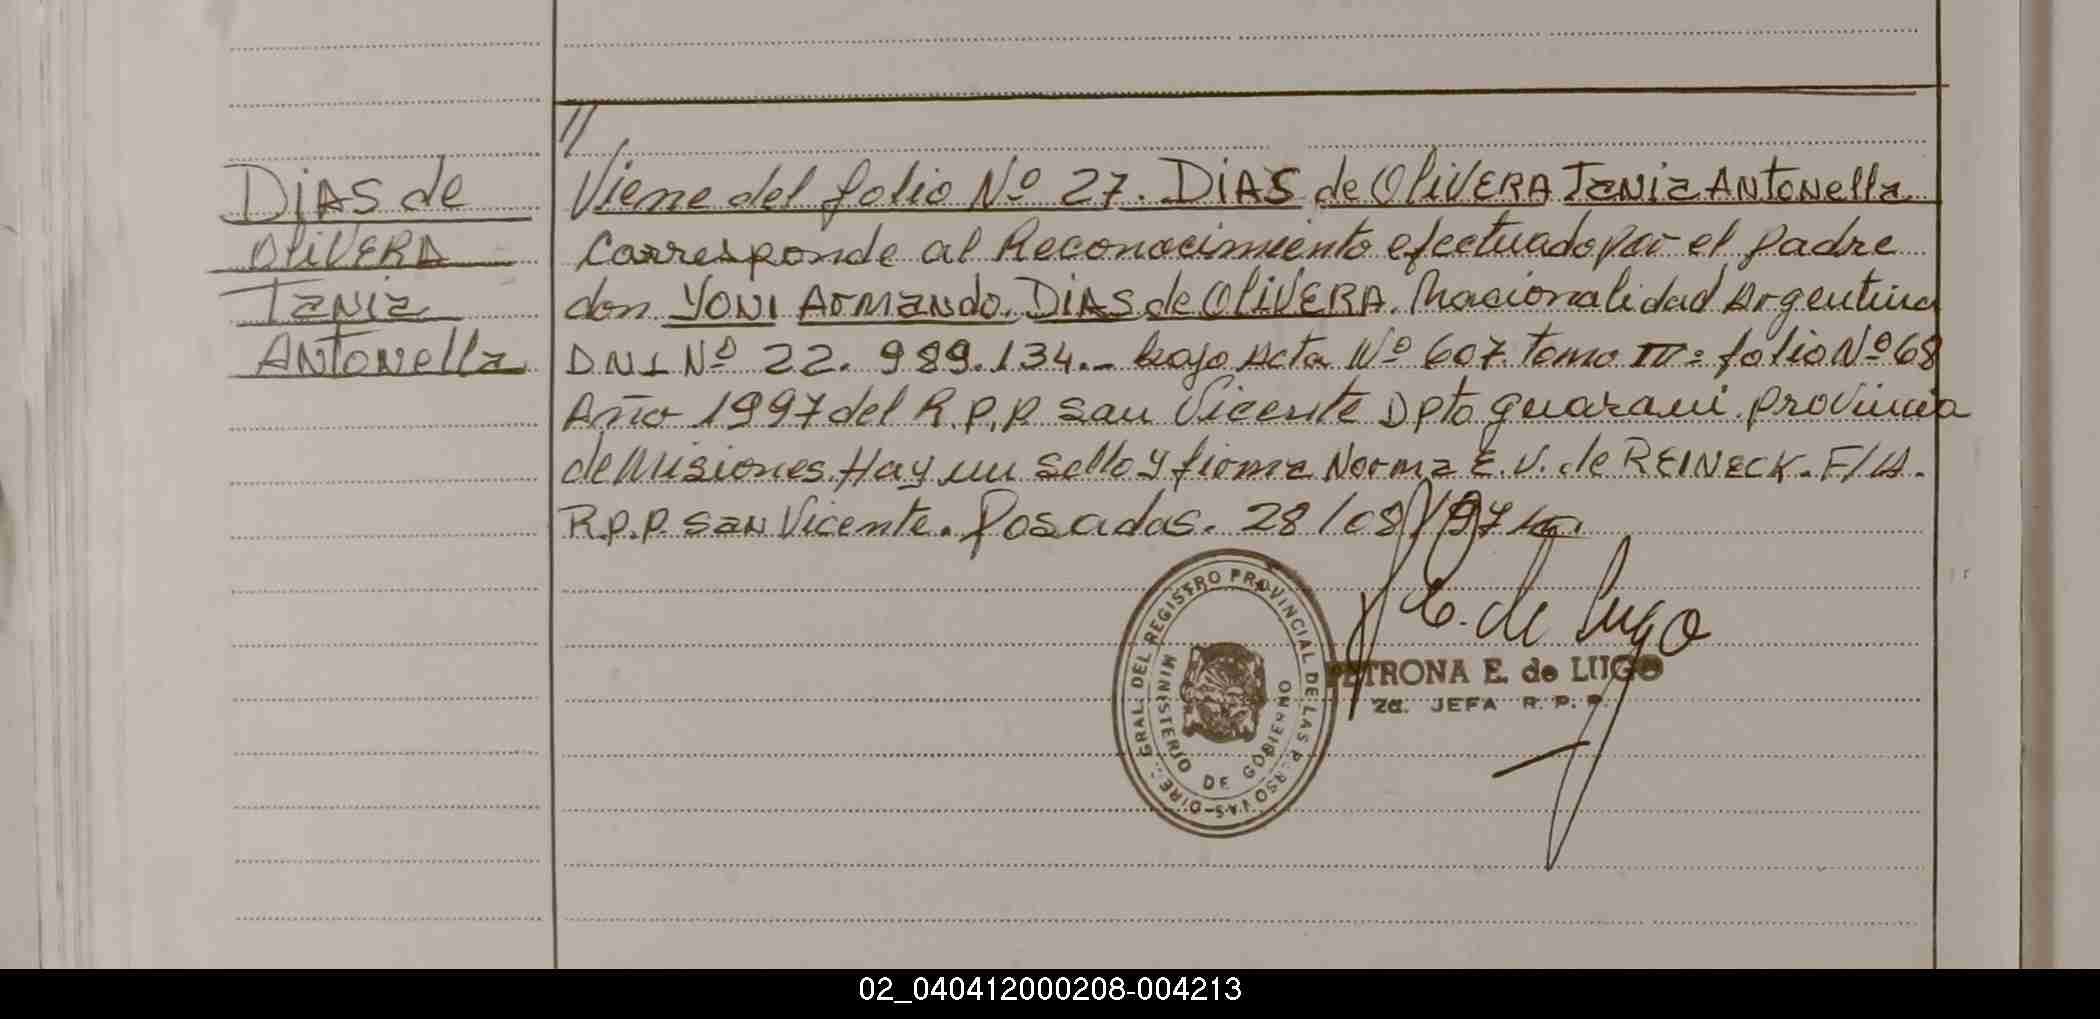 //
DiAS de
OliVERA
Tania
Antonella
Viene del folio Nº 27. DiAS de OliVERA Tania Antonella
Corresponde al Reconocimiento efectuado por el padre
don YONI Armando DiAS de OliVERA. Nacionalidad Argentina
DNI Nº 22.989.134.- bajo Acta Nº 607 tomo IIIº folio Nº 68
Año 1997 del R.P.P. San Vicente Dpto guarani. provincia
de Misiones. Hay un sello y firma Norma E. V. de REINECK. F/A.
R.P.P. San Vicente. Posadas. 28/08/97
DIREC. GRAL. DEL REGISTRO PROVINCIAL DE LAS PERSONAS
MINISTERIO DE GOBIERNO
P E. de Lugo
PETRONA E. de LUGO
2a. JEFA R. P. P.
02_040412000208-004213